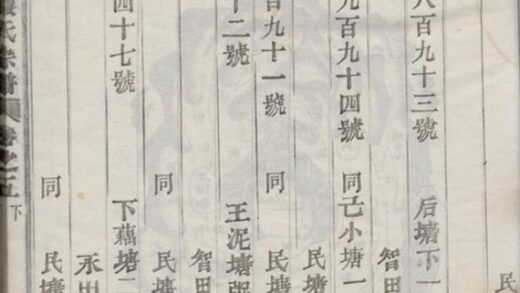 民
八百九十三號 后塘下一
智田
九百九十四號 同亡小塘一
民塘
百九十一號 同 民塘
十二號 王泥塘
智田
同 民塘
四十七號 下藕塘
田
同 民塘
氏宗譜 卷之五 下